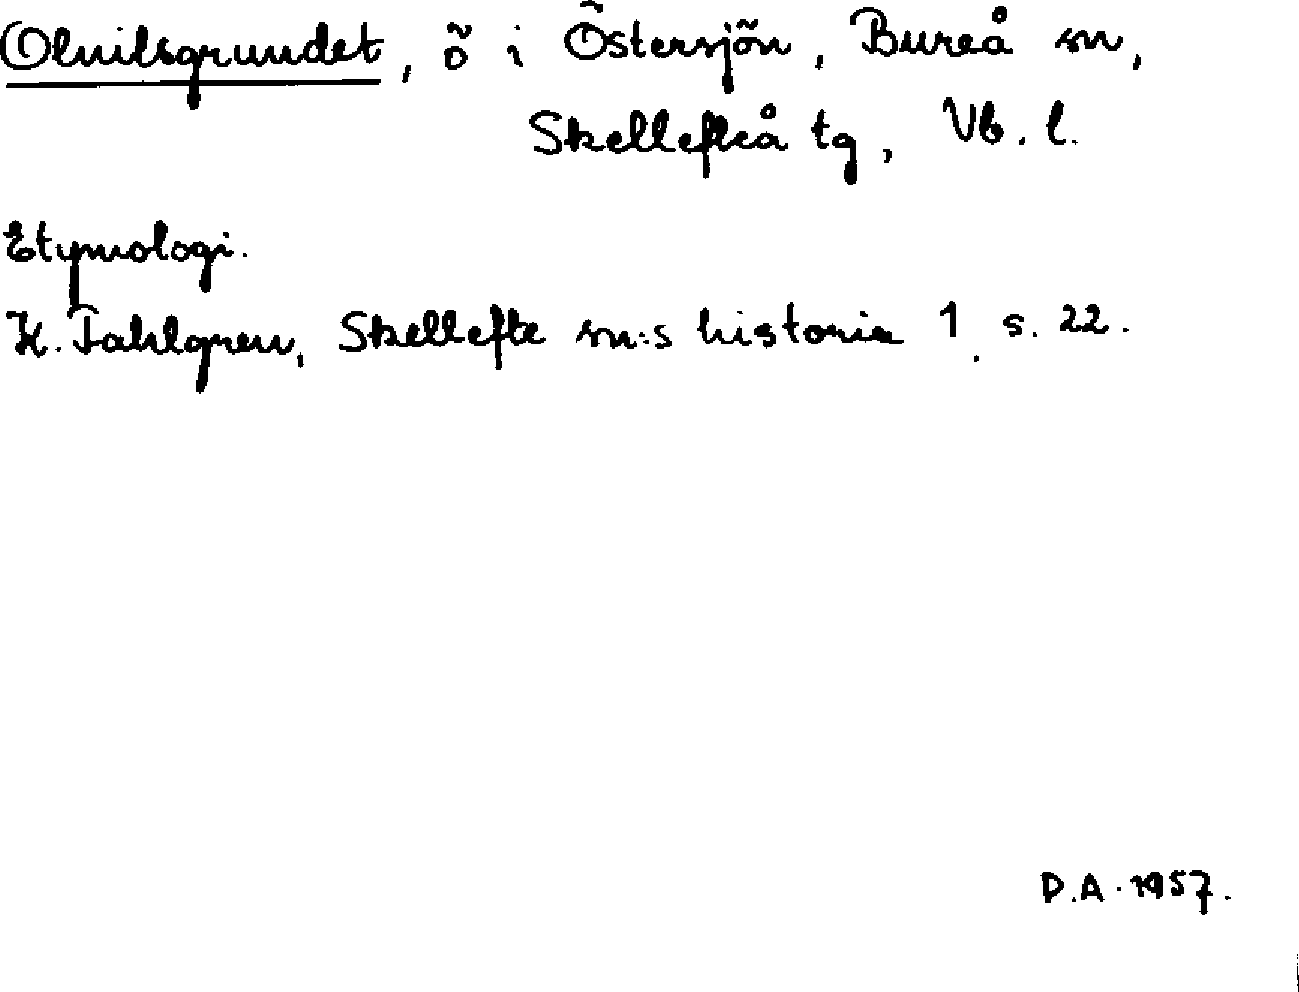 Olnilsgrundet, ö i Östersjön, Bureå sn,
Skellefteå tg, Vb. l.
Etymologi.
K. Fahlgren, Skellefte sn:s historia 1, s. 22.
D.A. 1957.